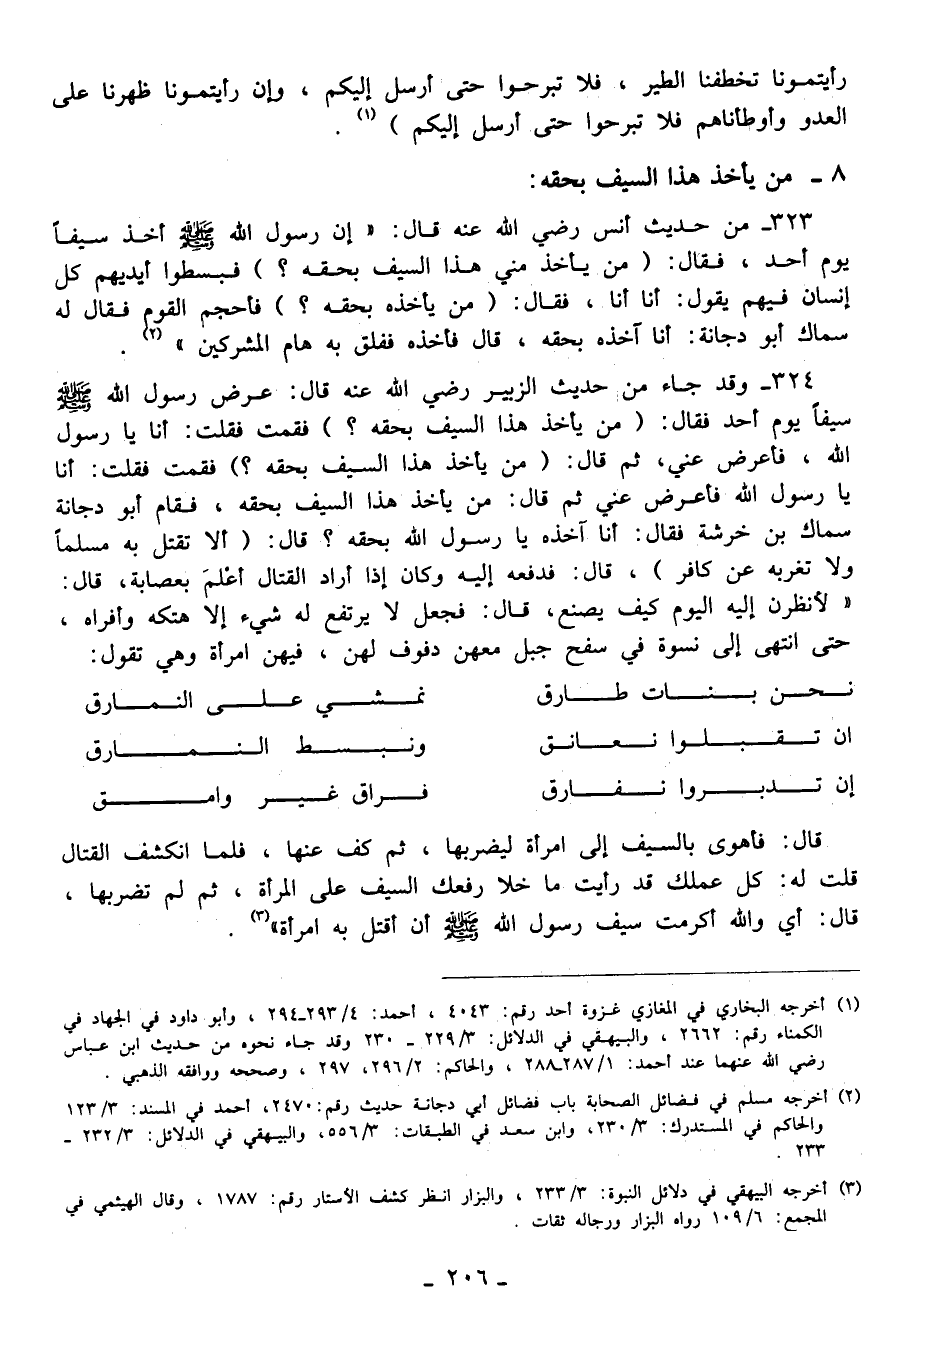 رأيتمونا تخطفنا الطير ، فلا تبرحوا حتى أرسل إليكم ، وإن رأيتمونا ظهرنا على
العدو وأوطأناهم فلا تبرحوا حتى أرسل إليكم ) (١) .
٨ ـ من يأخذ هذا السيف بحقه:
٣٢٣ـ من حديث أنس رضي الله عنه قال: « إن رسول الله ﷺ أخذ سيفاً
يوم أحد ، فقال: ( من يأخذ مني هذا السيف بحقه ؟ ) فبسطوا أيديهم كل
إنسان فيهم يقول: أنا أنا ، فقال: ( من يأخذه بحقه ؟ ) فأحجم القوم فقال له
سماك أبو دجانة: أنا آخذه بحقه ، قال فأخذه ففلق به هام المشركين » (٢) .
٣٢٤ـ وقد جاء من حديث الزبير رضي الله عنه قال: عرض رسول الله ﷺ
سيفاً يوم أحد فقال: ( من يأخذ هذا السيف بحقه ؟ ) فقمت فقلت: أنا يا رسول
الله ، فأعرض عني، ثم قال: ( من يأخذ هذا السيف بحقه ؟) فقمت فقلت: أنا
يا رسول الله فأعرض عني ثم قال: من يأخذ هذا السيف بحقه ، فقام أبو دجانة
سماك بن خرشة فقال: أنا آخذه يا رسول الله بحقه ؟ قال: ( ألا تقتل به مسلماً
ولا تغربه عن كافر ) ، قال: فدفعه إليه وكان إذا أراد القتال أعْلمَ بعصابة، قال:
« لأنظرن إليه اليوم كيف يصنع، قال: فجعل لا يرتفع له شيء إلا هتكه وأفراه ،
حتى انتهى إلى نسوة في سفح جبل معهن دفوف لهن ، فيهن امرأة وهي تقول:
نحن بنات طارق نمشي على النمارق
ان تقبلوا نعانق ونبسط النمارق
إن تدبروا نفارق فراق غير وامق
قال: فأهوى بالسيف إلى امرأة ليضربها ، ثم كف عنها ، فلما انكشف القتال
قلت له: كل عملك قد رأيت ما خلا رفعك السيف على المرأة ، ثم لم تضربها ،
قال: أي والله أكرمت سيف رسول الله ﷺ أن أقتل به امرأة»(٣) .
(١) أخرجه البخاري في المغازي غزوة أحد رقم: ٤٠٤٣ ، أحمد: ٤/ ٢٩٣ـ٢٩٤ ، وأبو داود في الجهاد في
الكمناء رقم: ٢٦٦٢ ، والبيهقي في الدلائل: ٣/ ٢٢٩ ـ ٢٣٠ وقد جاء نحوه من حديث ابن عباس
رضي الله عنهما عند أحمد: ١/ ٢٨٧ـ٢٨٨ ، والحاكم: ٢/ ٢٩٦، ٢٩٧ ، وصححه ووافقه الذهبي .
(٢) أخرجه مسلم في فضائل الصحابة باب فضائل أبي دجانة حديث رقم:٢٤٧٠، أحمد في المسند: ٣/ ١٢٣
والحاكم في المستدرك: ٣/ ٢٣٠، وابن سعد في الطبقات: ٣/ ٥٥٦، والبيهقي في الدلائل: ٣/ ٢٣٢ ـ
٢٣٣ .
(٣) أخرجه البيهقي في دلائل النبوة: ٣/ ٢٣٣ ، والبزار انظر كشف الأستار رقم: ١٧٨٧ ، وقال الهيثمي في
المجمع: ٦/ ١٠٩ رواه البزار ورجاله ثقات .
ـ ٢٠٦ ـ